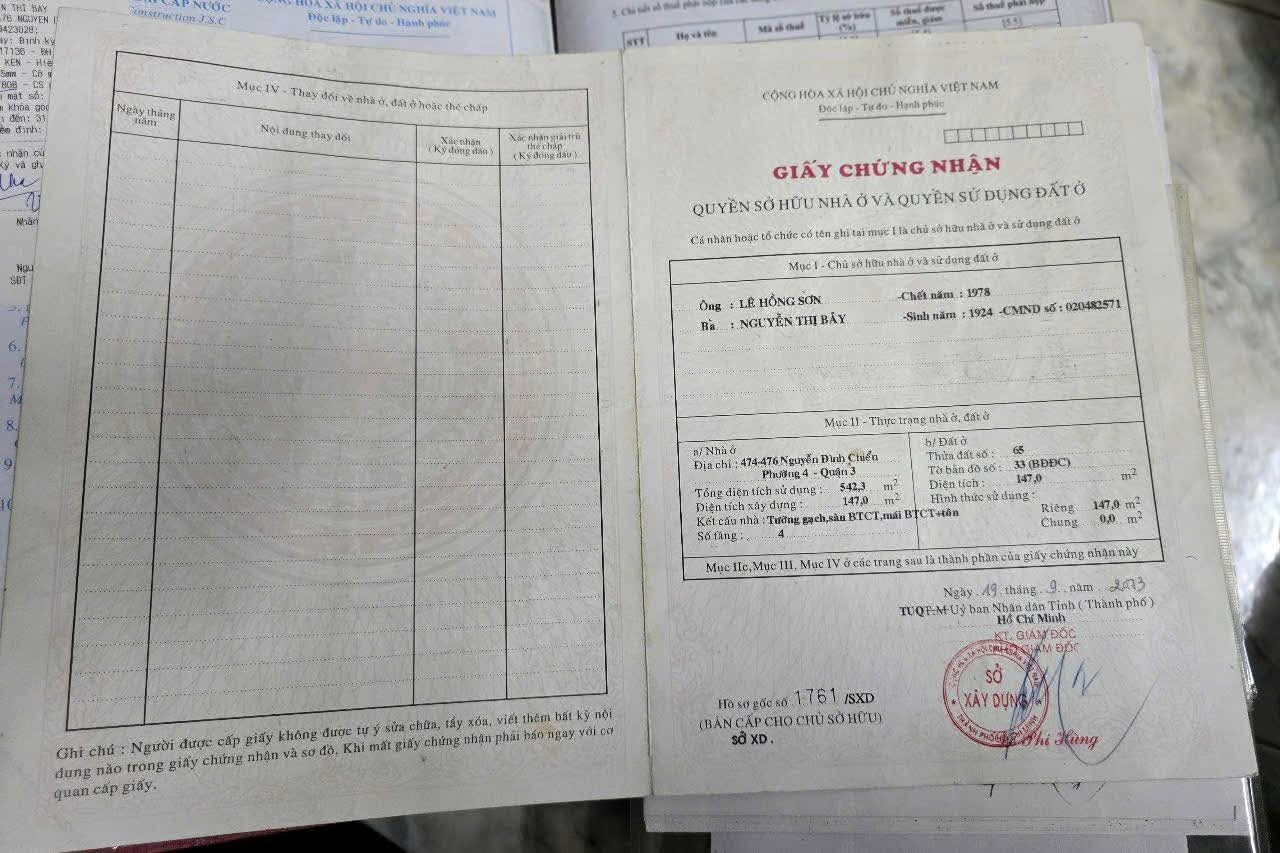 THỊ BAY
CẤP NƯỚC
Construction J.S.C
CỘNG HÒA XÃ HỘI CHỦ NGHĨA VIỆT NAM
Độc lập - Tự do - Hạnh phúc
STT
Họ và tên
Mã số thuế
Tỷ lệ sở hữu
(%)
Số thuế được
miễn, giảm
Số thuế phải nộp
[5.5]
76 NGUYEN
0423028;
17136 - ĐH
808 - CS
mật số:
đến: 31
Nhân
SĐT
6.
7.
8.
9.
10
Mục IV - Thay đổi về nhà ở, đất ở hoặc thế chấp
Ngày tháng
năm
Nội dung thay đổi
Xác nhận
( Ký đóng dấu )
Xác nhận giải trừ
thế chấp
( Ký đóng dấu )
Ghi chú : Người được cấp giấy không được tự ý sửa chữa, tẩy xóa, viết thêm bất kỳ nội
dung nào trong giấy chứng nhận và sơ đồ. Khi mất giấy chứng nhận phải báo ngay với cơ
quan cấp giấy.
CỘNG HÒA XÃ HỘI CHỦ NGHĨA VIỆT NAM
Độc lập - Tự do - Hạnh phúc
GIẤY CHỨNG NHẬN
QUYỀN SỞ HỮU NHÀ Ở VÀ QUYỀN SỬ DỤNG ĐẤT Ở
Cá nhân hoặc tổ chức có tên ghi tại mục I là chủ sở hữu nhà ở và sử dụng đất ở
Mục I - Chủ sở hữu nhà ở và sử dụng đất ở
Ông : LÊ HỒNG SƠN -Chết năm : 1978
Bà : NGUYỄN THỊ BẢY -Sinh năm : 1924 -CMND số : 020482571
Mục II - Thực trạng nhà ở, đất ở
a/ Nhà ở
Địa chỉ : 474-476 Nguyễn Đình Chiểu
Phường 4 - Quận 3
Tổng diện tích sử dụng : 542,3 m2
Diện tích xây dựng : 147,0 m2
Kết cấu nhà : Tường gạch,sàn BTCT,mái BTCT+tôn
Số tầng : 4
b/ Đất ở
Thửa đất số : 65
Tờ bản đồ số : 33 (BĐĐC)
Diện tích : 147,0 m2
Hình thức sử dụng :
Riêng 147,0 m2
Chung 0,0 m2
Mục IIc,Mục III, Mục IV ở các trang sau là thành phần của giấy chứng nhận này
Ngày 19 tháng 9 năm 2013
TUQT.M Uỷ ban Nhân dân Tỉnh ( Thành phố )
Hồ Chí Minh
KT. GIÁM ĐỐC
PHÓ GIÁM ĐỐC
SỞ
XÂY DỰNG
Phi Hùng
Hồ sơ gốc số 1761 /SXD
(BẢN CẤP CHO CHỦ SỞ HỮU)
SỞ XD .